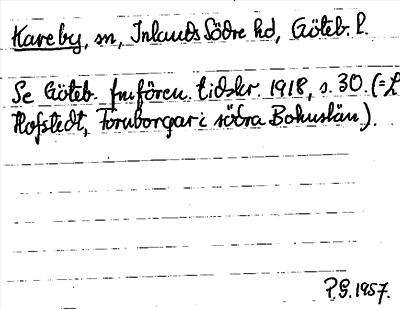 Kareby, sn, Inlands Södre hd, Göteb. l.
Se Göteb. fmfören. tidskr. 1918, s. 30. (=L
Hofstedt, Fornborgar i södra Bohuslän).
P.G. 1957.